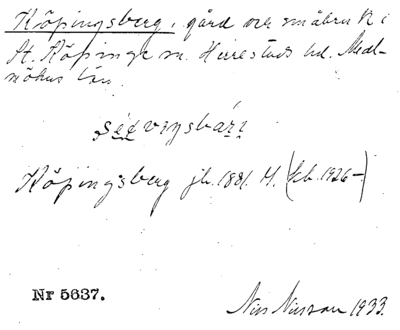 Köpingsberg, gård och småbruk i
St. Köpinge sn. Herrestads hd. Mal-
möhus län.
Köpingsberg jb. 1881. M. (kb. 1926-)
Nr 5637.
Nils Nilsson 1933.